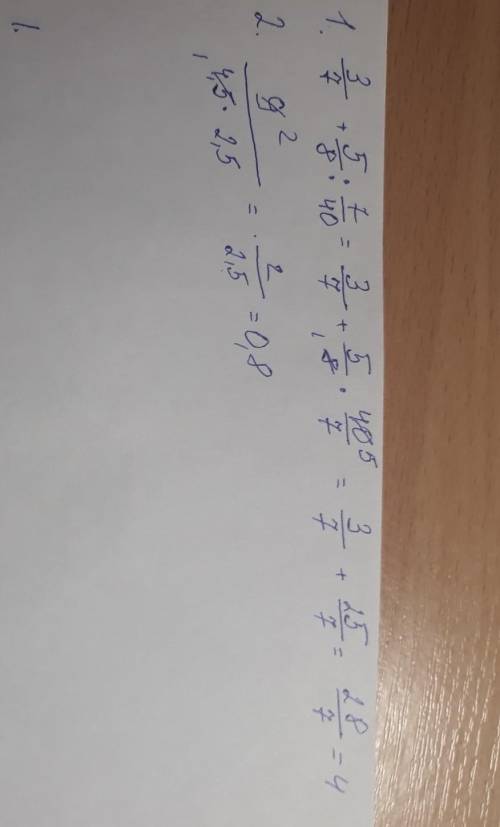 1. 3/7 + 5/8 : 7/40 = 3/7 + 5/8 · 40/7 = 3/7 + 25/7 = 28/7 = 4
2. 9/(4,5 · 2,5) = 2/2,5 = 0,8
1.